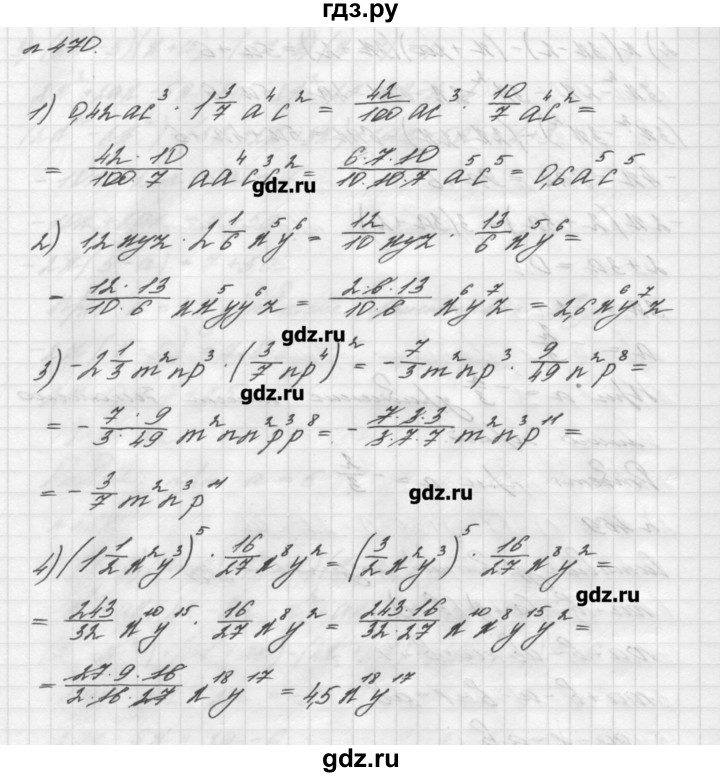 гдз.ру
№ 470.
1) 0,42ac³ · 1 3/7 a⁴c² = 42/100 ac³ · 10/7 a⁴c² =
= 42·10/100·7 aa⁴c³c² = 6·7·10/10·10·7 a⁵c⁵ = 0,6a⁵c⁵
gdz.ru
2) 1,2xyz · 2 1/6 x⁵y⁶ = 12/10 xyz · 13/6 x⁵y⁶ =
= 12·13/10·6 xx⁵yy⁶z = 2·6·13/10·6 x⁶y⁷z = 2,6x⁶y⁷z
gdz.ru
3) -2 1/3 m²np³ · (3/7 np⁴)² = - 7/3 m²np³ · 9/49 n²p⁸ =
gdz.ru
= - 7·9/3·49 m²nn²p³p⁸ = - 7·3·3/3·7·7 m²n³p¹¹ =
= - 3/7 m²n³p¹¹
gdz.ru
4) (1 1/2 x²y³)⁵ · 16/27 x⁸y² = (3/2 x²y³)⁵ · 16/27 x⁸y² =
gdz.ru
= 243/32 x¹⁰y¹⁵ · 16/27 x⁸y² = 243·16/32·27 x¹⁰x⁸y¹⁵y² =
= 27·9·16/2·16·27 x¹⁸y¹⁷ = 4,5x¹⁸y¹⁷
gdz.ru